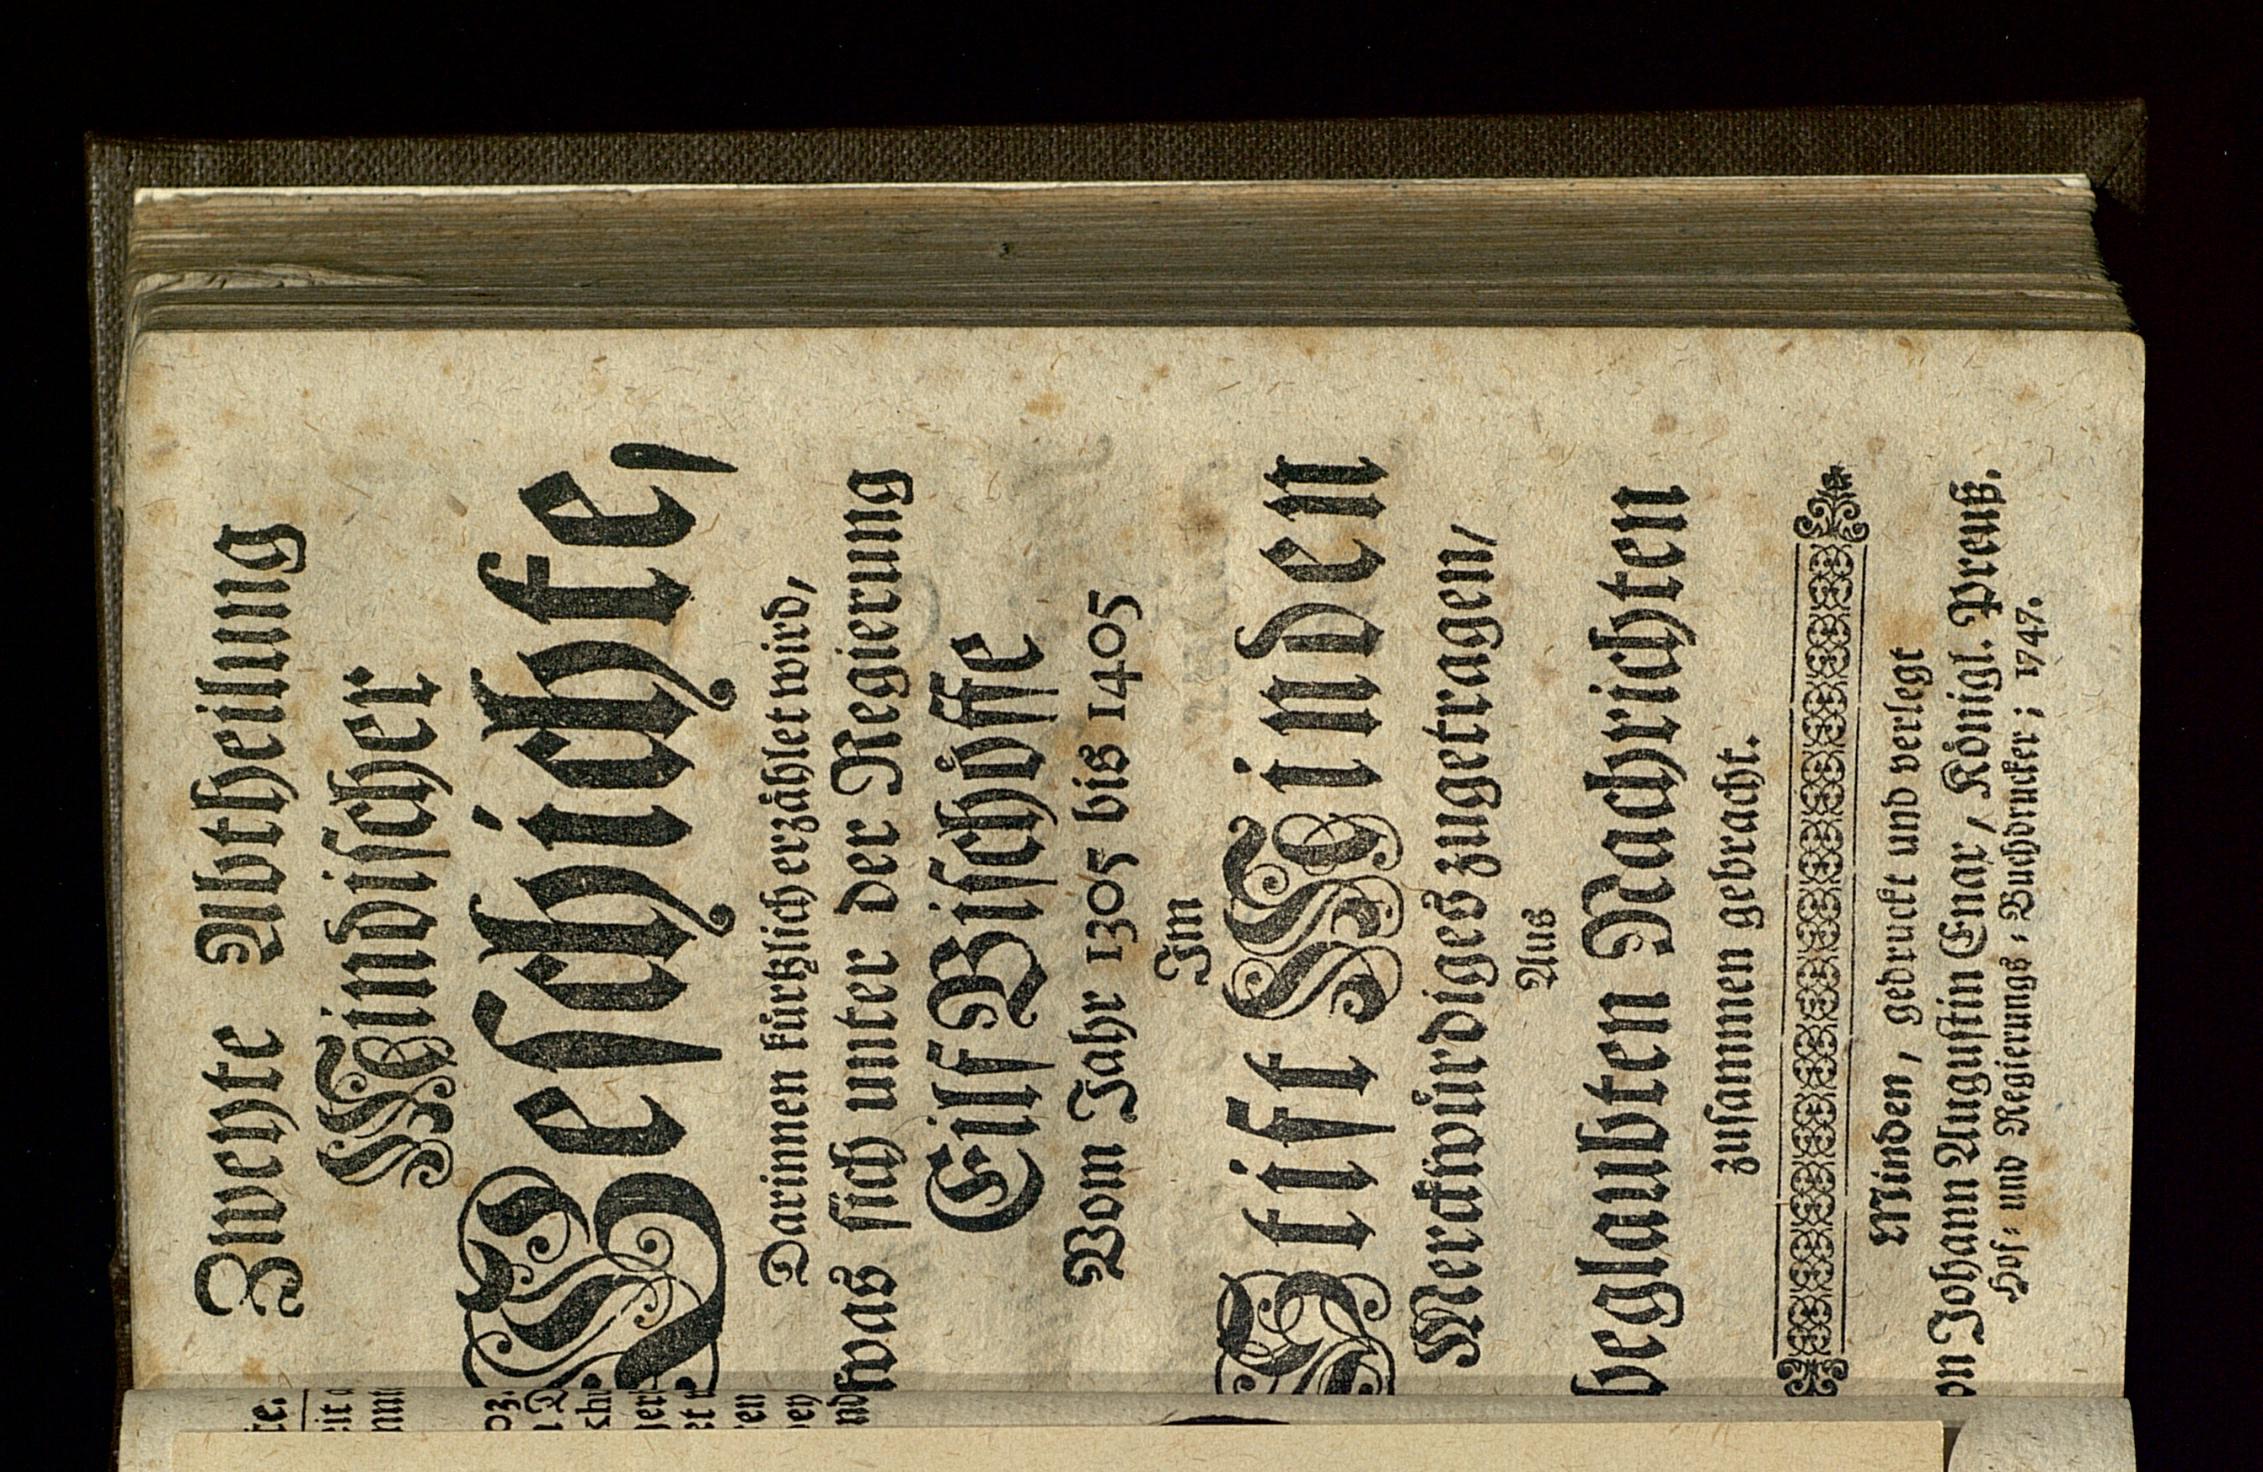 Zweyte Abtheilung
Mindiſcher
Geſchichte,
Darinnen kürtzlich erzählet wird,
was ſich unter der Regierung
Eilf Biſchöffe
Vom Jahr 1305 bis 1405
Im
Stift Minden
Merckwürdiges zugetragen,
Aus
beglaubten Nachrichten
zuſammen gebracht.
Minden, gedruckt und verlegt
Johann Auguſtin Enax, Königl. Preuß.
Hof- und Regierungs-Buchdrucker; 1747.